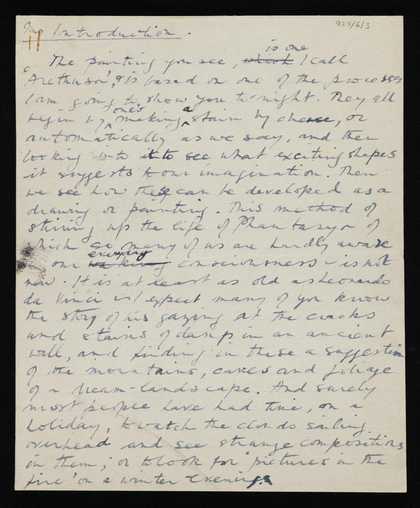 Introduction.
929/6/3
The painting you see, which is one I call
'Arethusa', is based on one of the processes
I am going to show you to-night. They all
begin by one's making a stain by chance, or
automatically as we say, and then
looking into it to see what exciting shapes
it suggests to our imagination. Then
we see how these can be developed as a
drawing or painting. This method of
stirring up the life of Phantasy of
which so many of us are hardly aware
in our waking everyday consciousness is not
new. It is at least as old as Leonardo
da Vinci & I expect many of you know
the story of his gazing at the cracks
and stains of damp in an ancient
wall, and finding in these a suggestion
of the mountains, caves and foliage
of a dream-landscape. And surely
most people have had time, on a
holiday, to watch the clouds sailing
overhead and see strange compositions
in them; or to look for 'pictures in the
fire' on a winter evening.